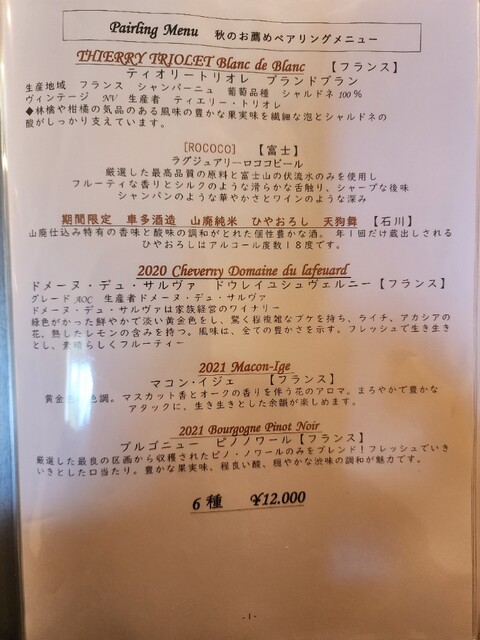 Pairling Menu 秋のお薦めペアリングメニュー
THIERRY TRIOLET Blanc de Blanc 【フランス】
ティオリートリオレ ブランドブラン
生産地域 フランス シャンパーニュ 葡萄品種 シャルドネ 100%
ヴィンテージ NV 生産者 ティエリー・トリオレ
◆林檎や柑橘の気品のある風味の豊かな果実味を繊細な泡とシャルドネの
酸がしっかり支えています。
[ROCOCO] 【富士】
ラグジュアリーロココビール
厳選した最高品質の原料と富士山の伏流水のみを使用し
フルーティな香りとシルクのような滑らかな舌触り、シャープな後味
シャンパンのような華やかさとワインのような深み
期間限定 車多酒造 山廃純米 ひやおろし 天狗舞 【石川】
山廃仕込み特有の香味と酸味の調和がとれた個性豊かな酒。 年1回だけ蔵出しされる
ひやおろしはアルコール度数18度です。
2020 Cheverny Domaine du lafeuard
ドメーヌ・デュ・サルヴァ ドウレイユシュヴェルニー【フランス】
グレード AOC 生産者ドメーヌ・デュ・サルヴァ
ドメーヌ・デュ・サルヴァは家族経営のワイナリー
緑色がかった鮮やかで淡い黄金色をし、驚く程複雑なブケを持ち、ライチ、アカシアの
花、熟したレモンの含みを持つ。風味は、全ての豊かさを示す。フレッシュで生き生き
とし、素晴らしくフルーティー
2021 Macon-Ige
マコン・イジェ 【フランス】
黄金色 色調。マスカット香とオークの香りを伴う花のアロマ。まろやかで豊かな
アタックに、生き生きとした余韻が楽しめます。
2021 Bourgogne Pinot Noir
ブルゴニュー ピノノワール【フランス】
厳選した最良の区画から収穫されたピノ・ノワールのみをブレンド!フレッシュでいき
いきとした口当たり。豊かな果実味、程良い酸、穏やかな渋味の調和が魅力です。
6種 ¥12.000
- 1 -